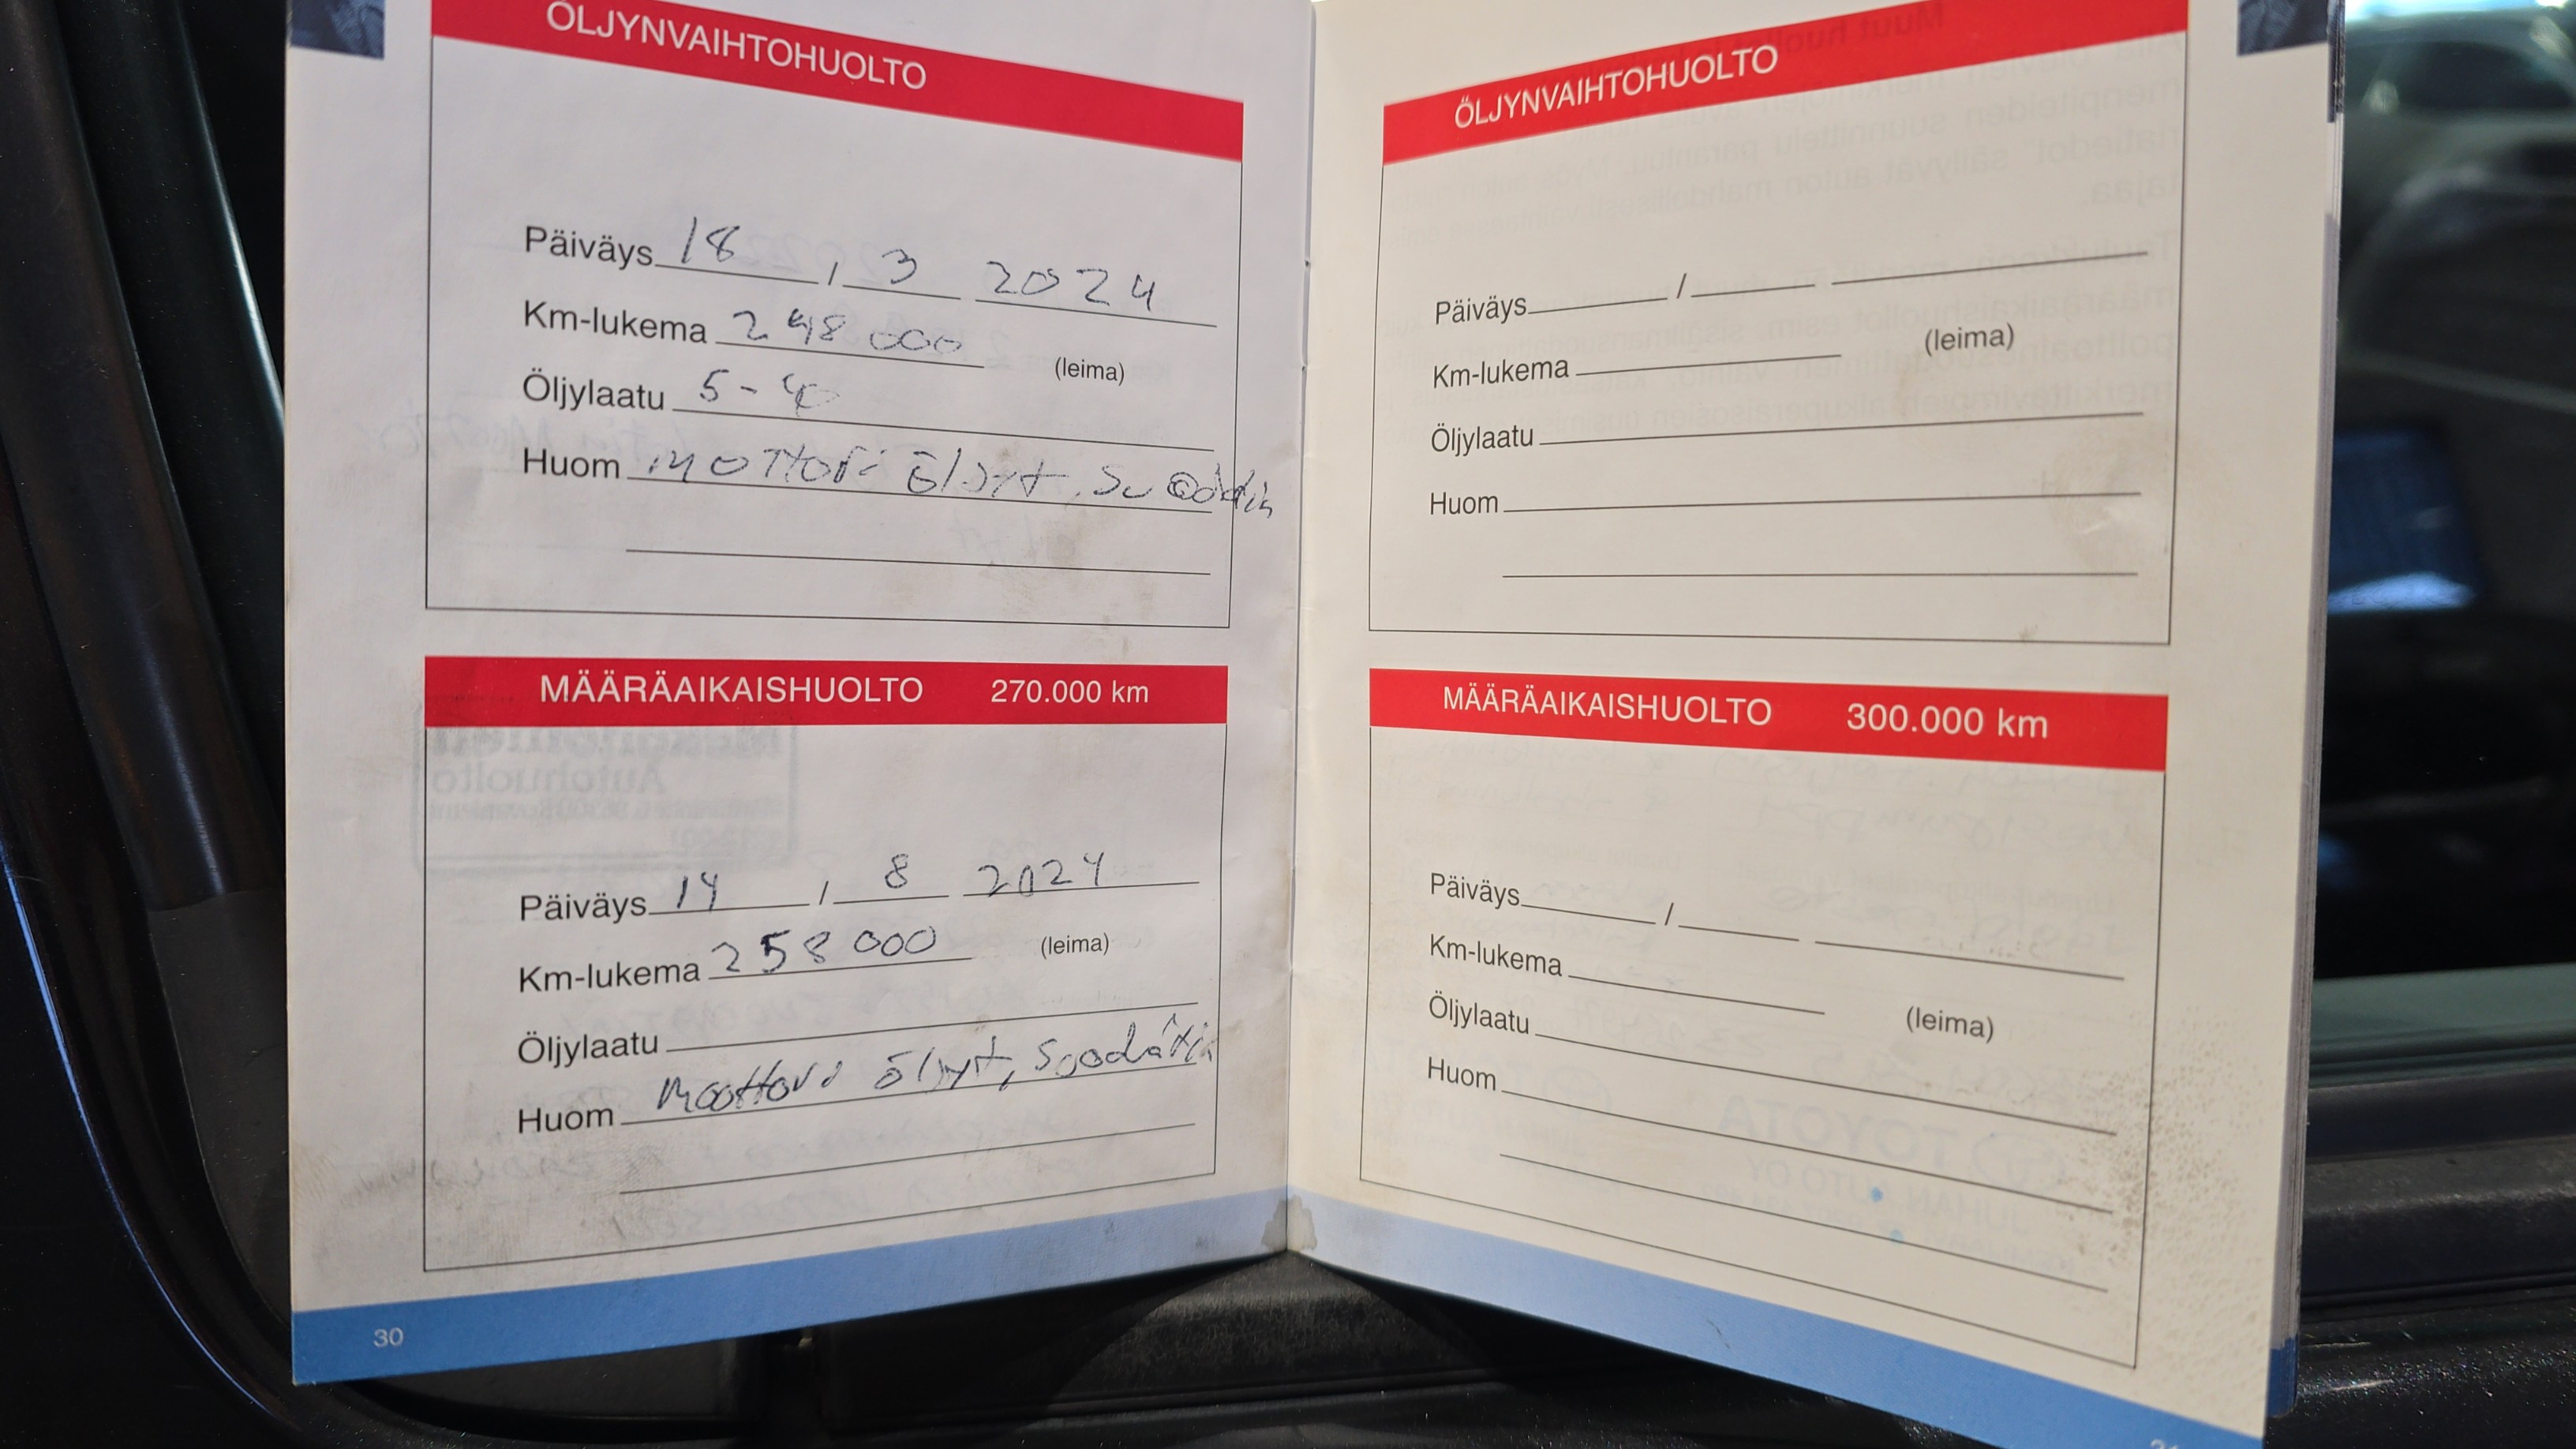 ÖLJYNVAIHTOHUOLTO
Päiväys 18 / 3 2024
Km-lukema 248 000
(leima)
Öljylaatu 5-40
Huom mottori öljyt, suodatin
MÄÄRÄAIKAISHUOLTO 270.000 km
Päiväys 14 / 8 2024
Km-lukema 258 000
(leima)
Öljylaatu
Huom Moottori öljyt, suodatin
30
ÖLJYNVAIHTOHUOLTO
Päiväys /
Km-lukema
(leima)
Öljylaatu
Huom
MÄÄRÄAIKAISHUOLTO 300.000 km
Päiväys /
Km-lukema
(leima)
Öljylaatu
Huom